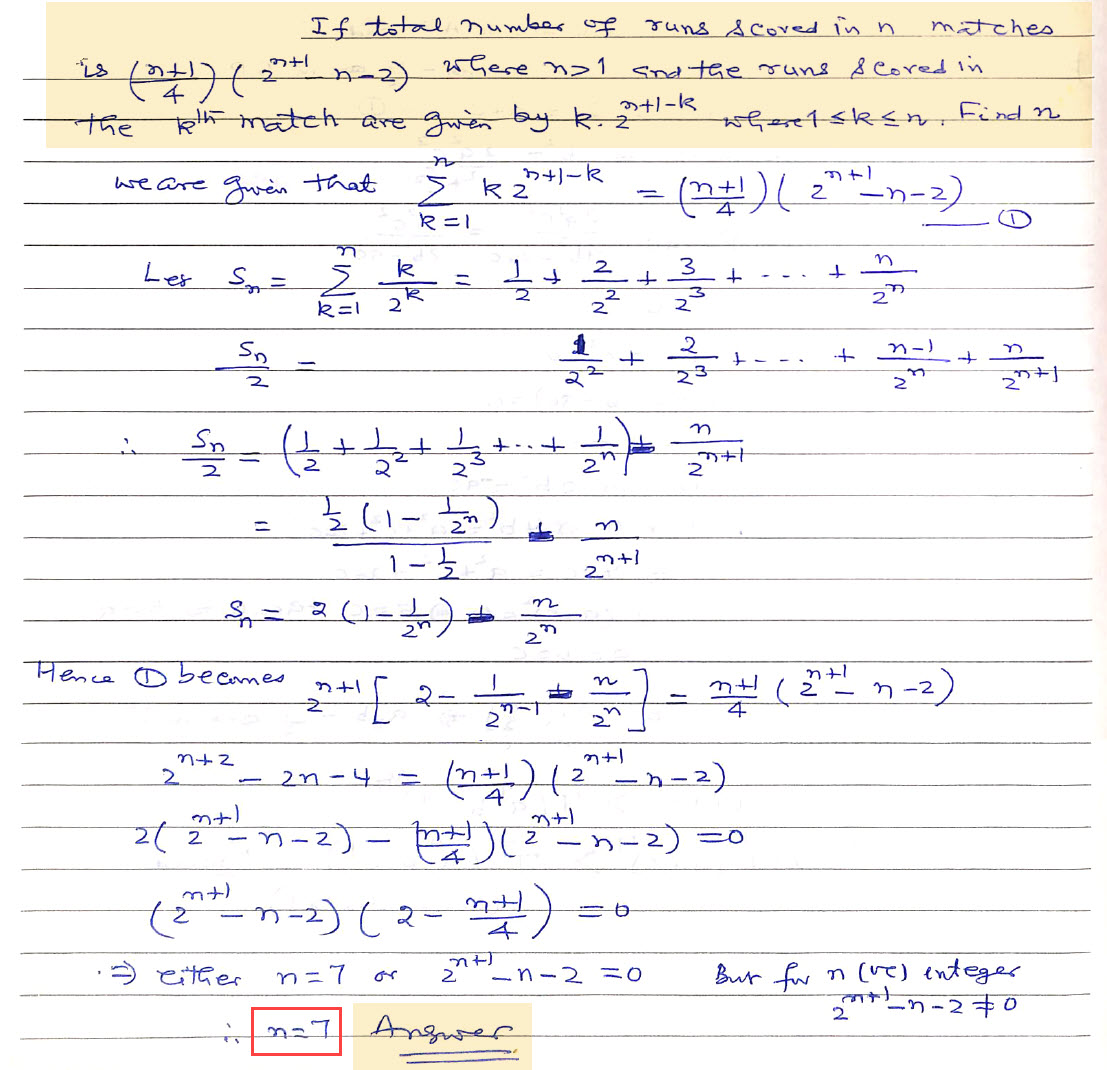 If total number of runs scored in n matches
is (n+1/4) (2^{n+1} - n - 2) where n>1 and the runs scored in
the k^{th} match are given by k. 2^{n+1-k} where 1 ≤ k ≤ n. Find n
we are given that \sum_{k=1}^{n} k 2^{n+1-k} = (n+1/4) (2^{n+1} - n - 2) ①
Let S_n = \sum_{k=1}^{n} k/2^k = 1/2 + 2/2^2 + 3/2^3 + ---- + n/2^n
S_n/2 = 1/2^2 + 2/2^3 + ---- + n-1/2^n + n/2^{n+1}
∴ S_n/2 = (1/2 + 1/2^2 + 1/2^3 + --- + 1/2^n) - n/2^{n+1}
= 1/2 (1 - 1/2^n) / 1 - 1/2 - n/2^{n+1}
S_n = 2 (1 - 1/2^n) - n/2^n
Hence ① becomes 2^{n+1} [2 - 1/2^{n-1} - n/2^n] = n+1/4 (2^{n+1} - n - 2)
2^{n+2} - 2n - 4 = (n+1/4) (2^{n+1} - n - 2)
2(2^{n+1} - n - 2) - (n+1/4) (2^{n+1} - n - 2) = 0
(2^{n+1} - n - 2) (2 - n+1/4) = 0
⇒ either n = 7 or 2^{n+1} - n - 2 = 0 But for n (ve) integer
2^{n+1} - n - 2 ≠ 0
∴ n = 7 Answer